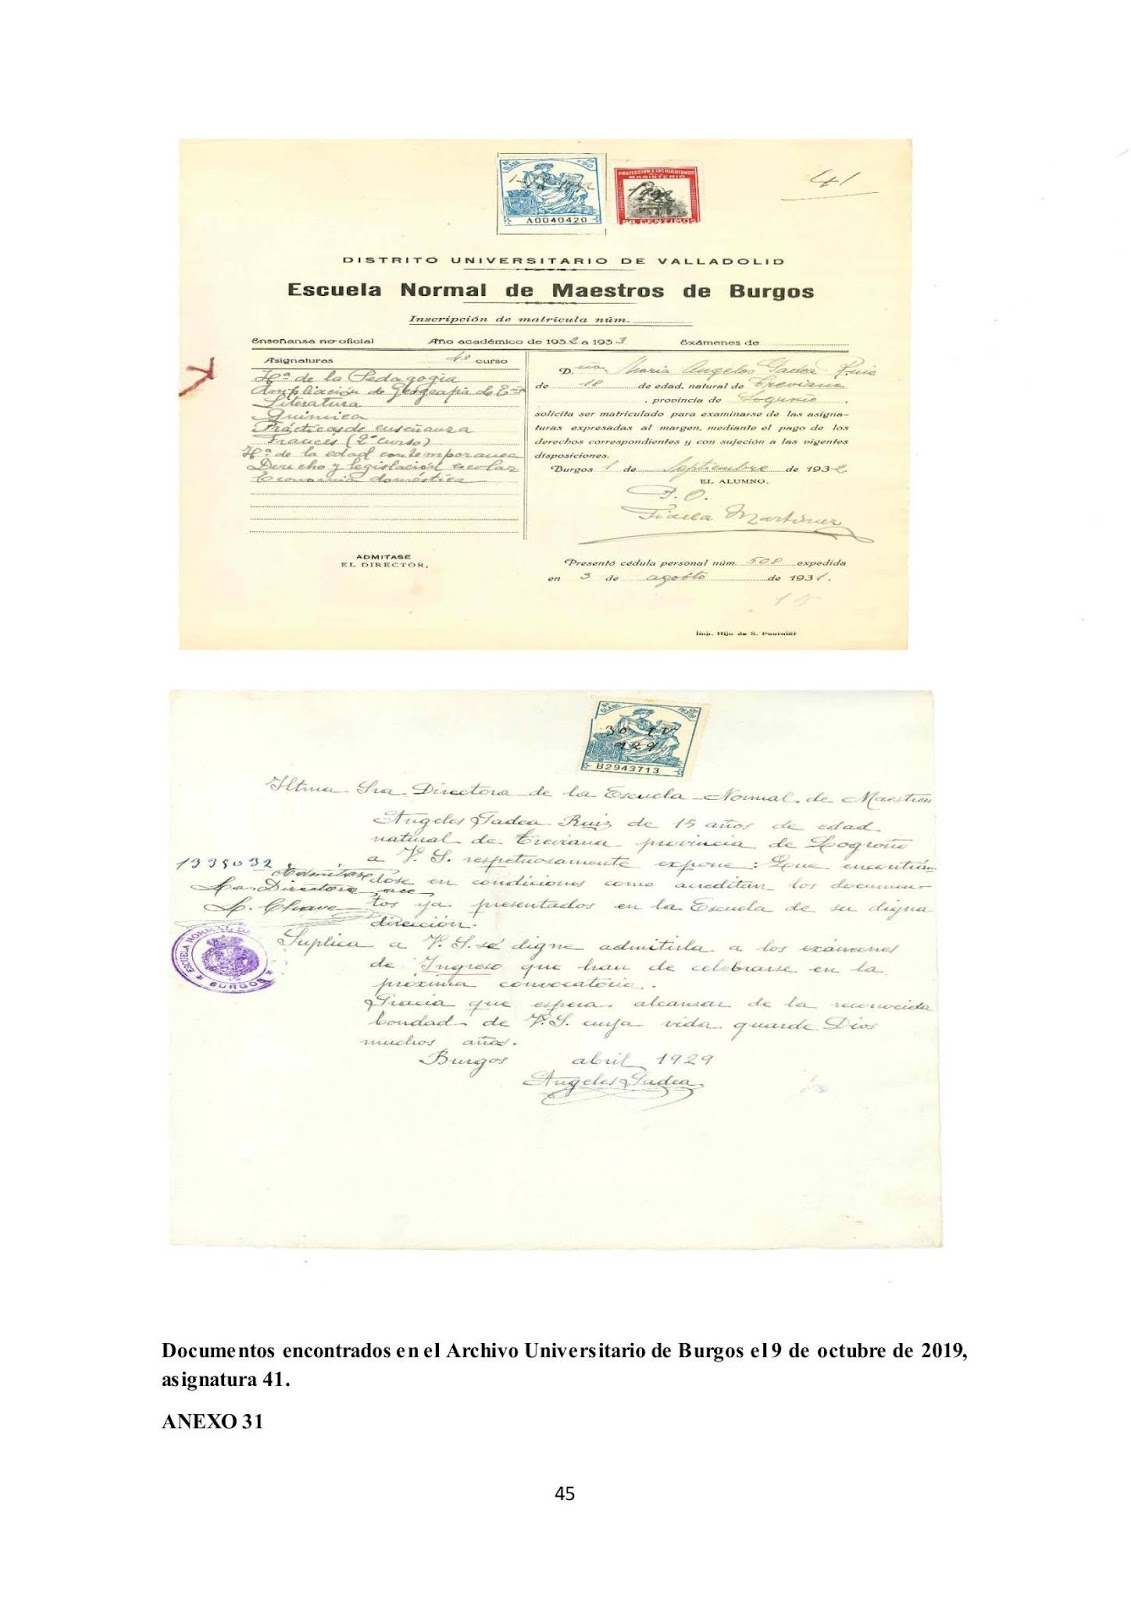 41
A0040420
PROTECCION A LOS HUERFANOS
MAGISTERIO
50 CENTIMOS
DISTRITO UNIVERSITARIO DE VALLADOLID
Escuela Normal de Maestros de Burgos
Inscripción de matrícula núm.
Enseñanza no oficial Año académico de 1932 a 1933 Exámenes de
Asignaturas 4º curso
Hª de la Pedagogia
Ampliación de Geografia de
Literatura
Quimica
Prácticas de enseñanza
Francés (2º curso)
Hª de la edad contemporanea
Derecho y legislación escolar
Economia doméstica
ADMITASE
EL DIRECTOR,
D. Maria Angeles Gadea Ruiz
de 18 de edad, natural de Treviana
, provincia de Logroño,
solicita ser matriculado para examinarse de las asigna-
turas expresadas al margen, mediante el pago de los
derechos correspondientes y con sujeción a las vigentes
disposiciones.
Burgos 1 de Septiembre de 1932
EL ALUMNO,
P. O.
Martinez
Presentó cédula personal núm. 508 expedida
en 3 de agosto de 1931.
15
Imp. Hijo de S. Fournier
30 IV
929
B2943713
Iltma Sra Directora de la Escuela Normal de Maestras
Angeles Gadea Ruiz de 15 años de edad
natural de Treviana provincia de Logroño
a V. S. respetuosamente expone: Que encontrán
dose en condiciones como acreditan los documen-
tos ya presentados en la Escuela de su digna
dirección.
Suplica a V. S. se digne admitirla a los exámenes
de Ingreso que han de celebrarse en la
proxima convocatoria.
Gracia que espera alcanzar de la reconocida
bondad de V. S. cuya vida guarde Dios
muchos años.
Burgos abril 1929
Angeles Gadea
Admitase
La Directora
ESCUELA NORMAL DE
BURGOS
Documentos encontrados en el Archivo Universitario de Burgos el 9 de octubre de 2019,
asignatura 41.
ANEXO 31
45